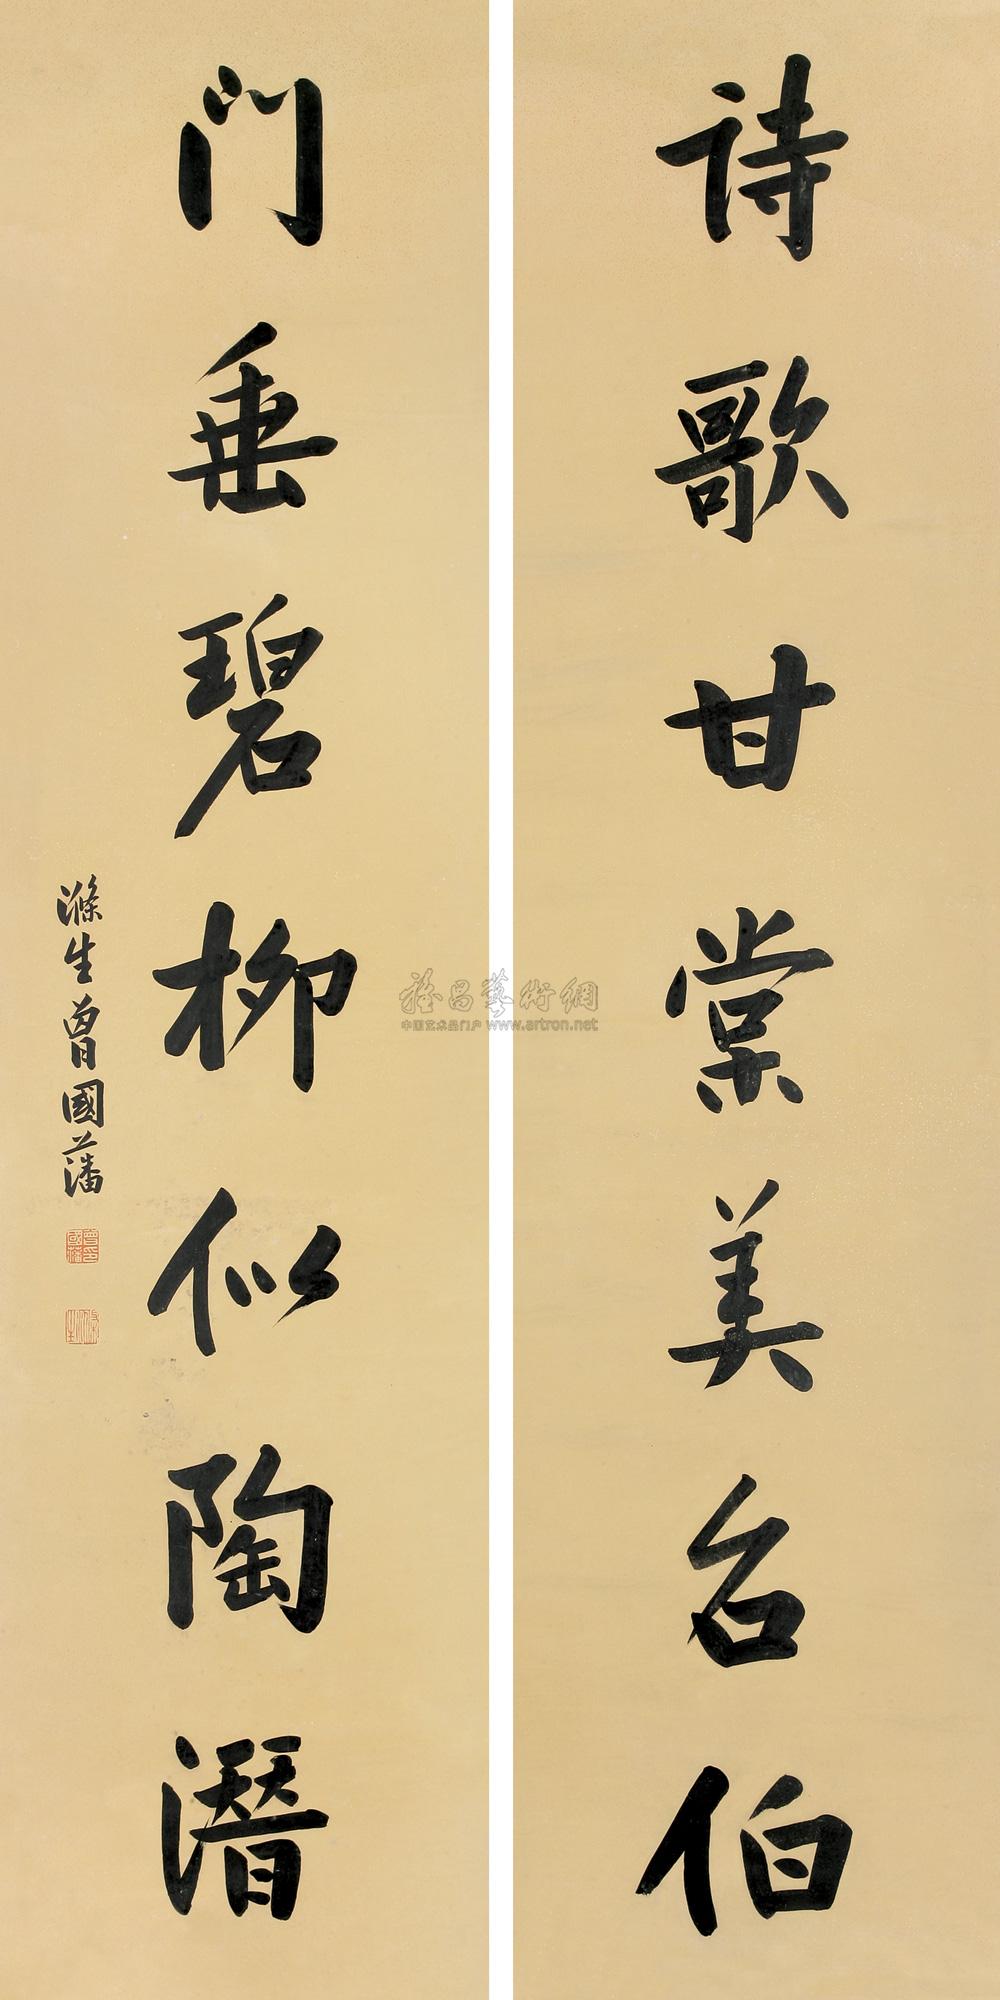 詩歌甘棠美召伯
門垂碧柳似陶潛
滌生曾國藩
雅昌藝術網
中国艺术品门户 www.artron.net